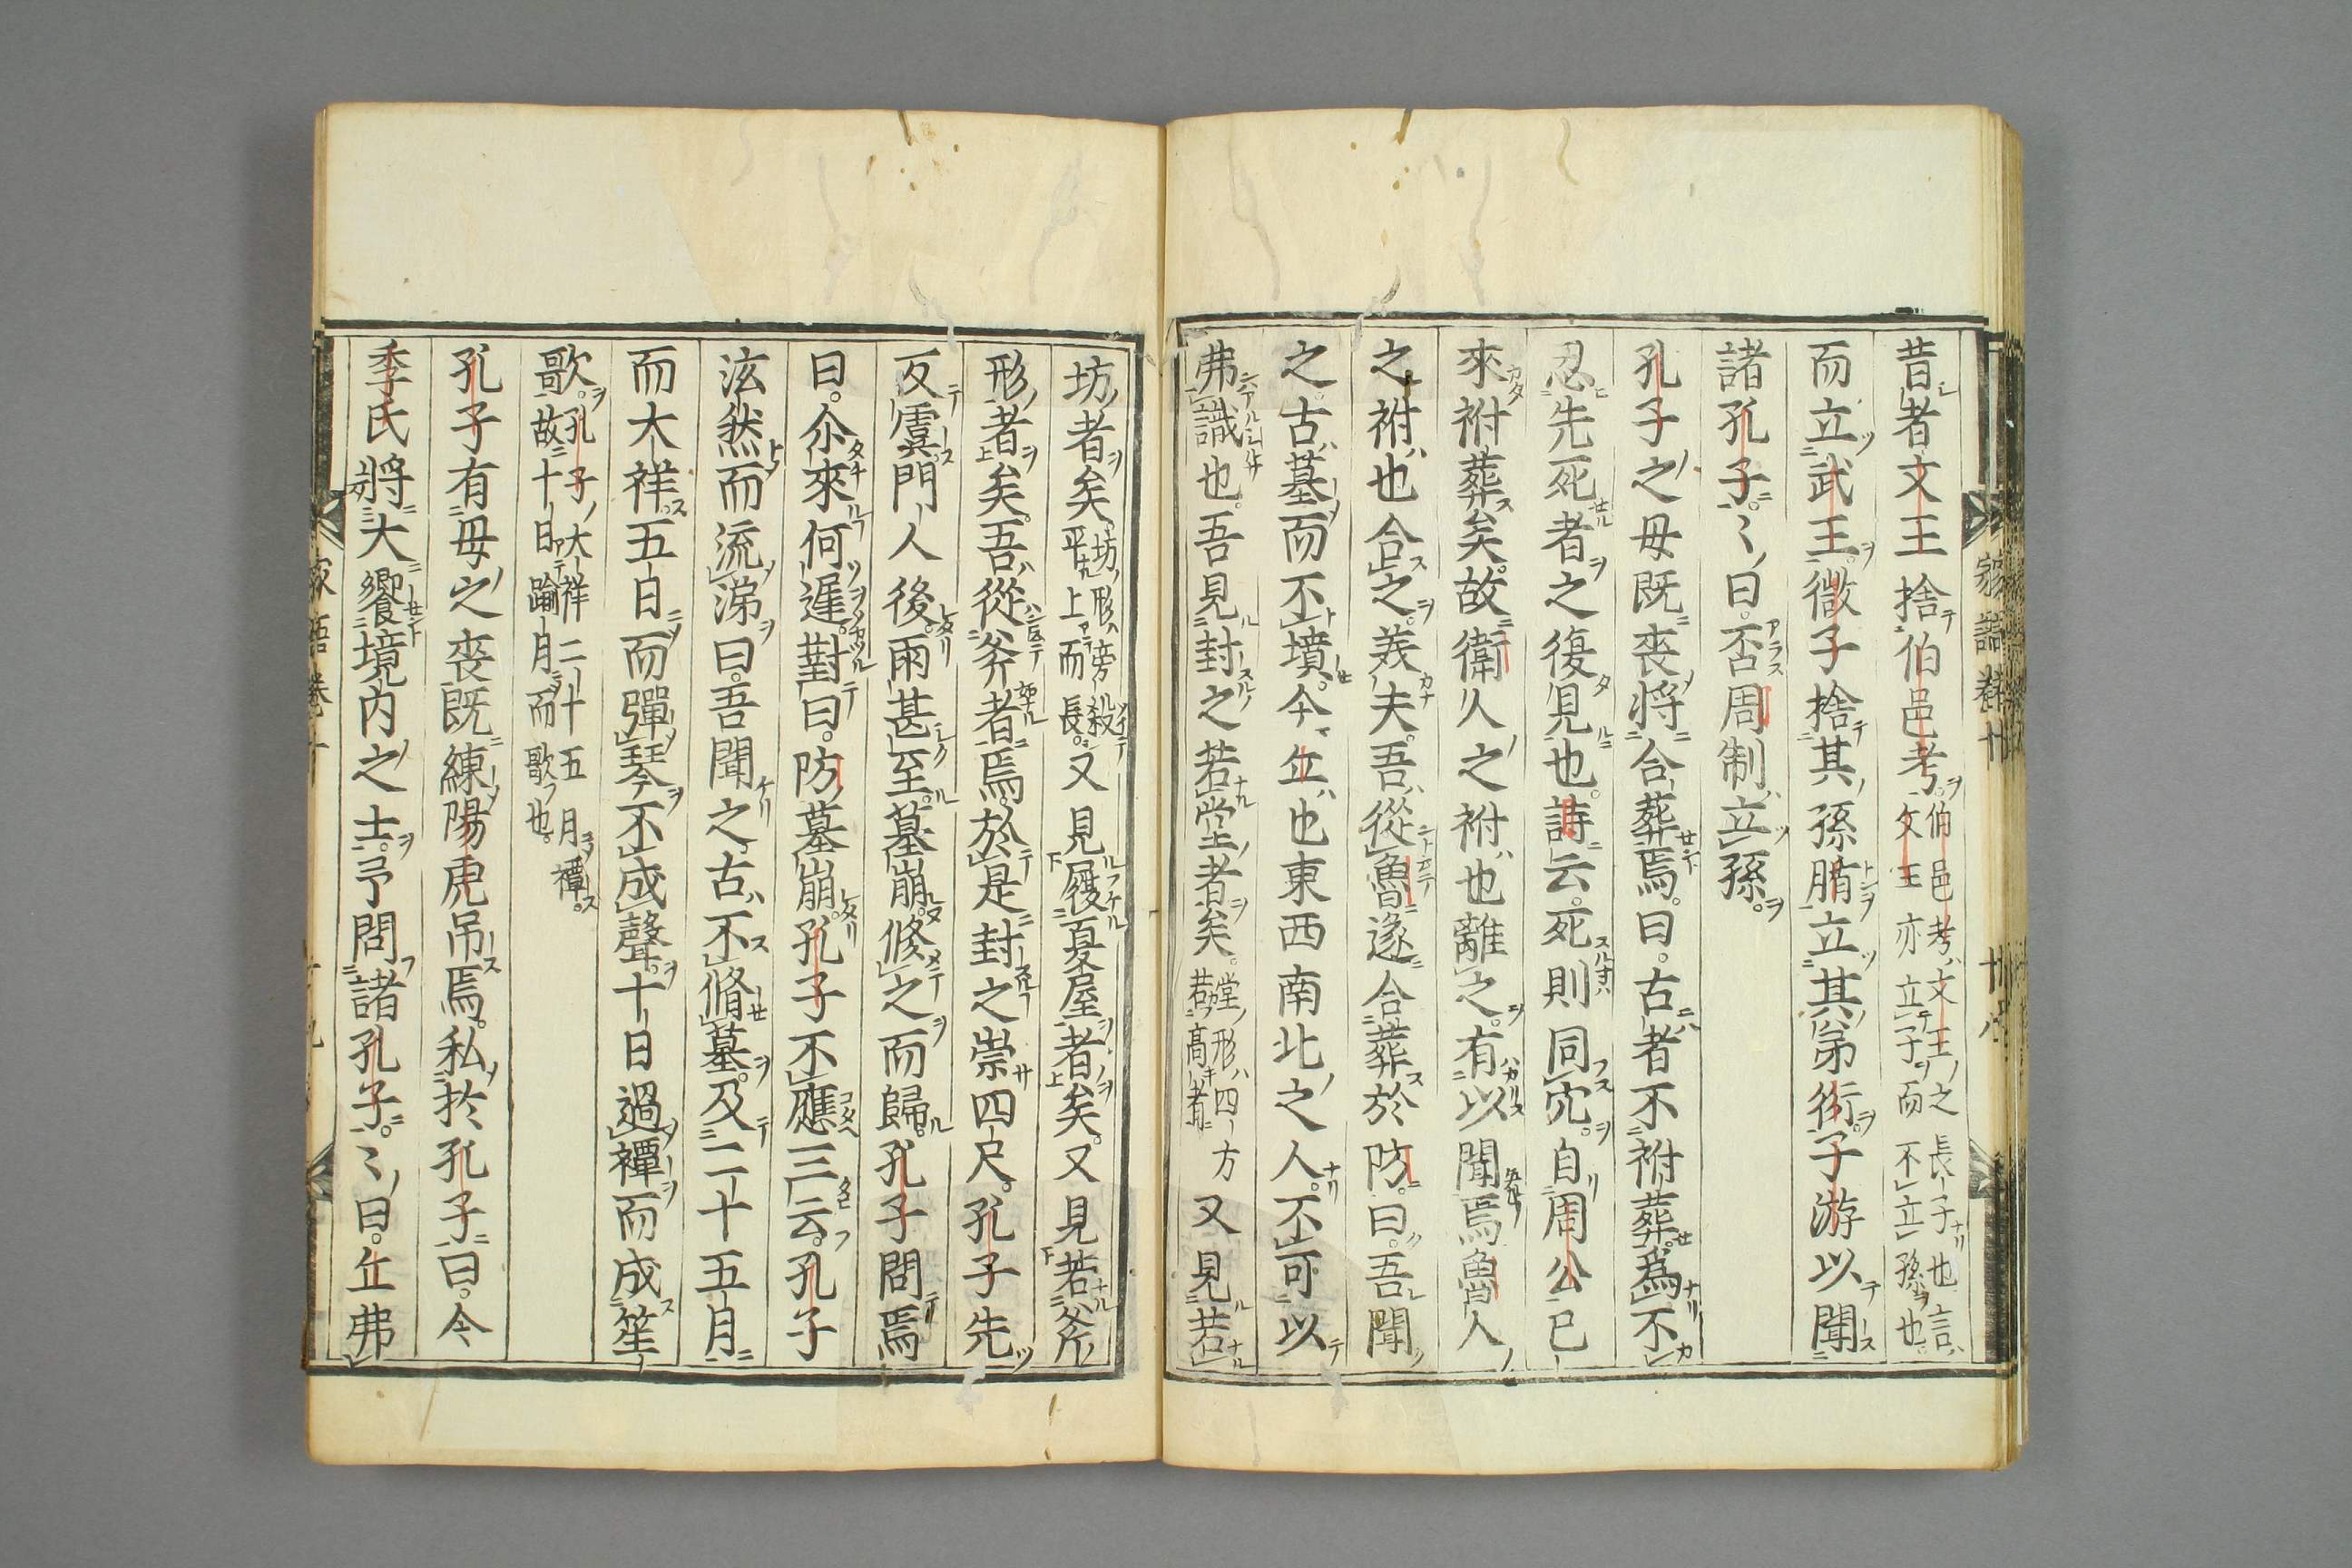 昔者文王捨伯邑考伯邑考文王之長子也言文王亦立子而不立孫也
而立武王微子捨其孫腯立其弟衍子游以聞
諸孔子〻曰否周制立孫
孔子之母既喪将合葬焉曰古者不祔葬爲不
忍先死者之復見也詩云死則同穴自周公已
來祔葬矣故衛人之祔也離之有以聞焉魯人
之祔也合之美夫吾從魯遂合葬於防曰吾聞
之古墓而不墳今丘也東西南北之人不可以
弗識也吾見封之若堂者矣堂形四方若高者又見若
坊者矣坊形旁殺平上而長又見履夏屋者矣又見若斧
形者矣吾從斧者焉於是封之崇四尺孔子先
反虞門人後雨甚至墓崩修之而歸孔子問焉
曰尒來何遲對曰防墓崩孔子不應三云孔子
泫然而流涕曰吾聞之古不脩墓及二十五月
而大祥五日而彈琴不成聲十日過禫而成笙
歌孔子大祥二十五月禫故十日踰月而歌也
孔子有母之喪既練陽虎吊焉私於孔子曰今
季氏將大饗境内之士予問諸孔子〻曰丘弗